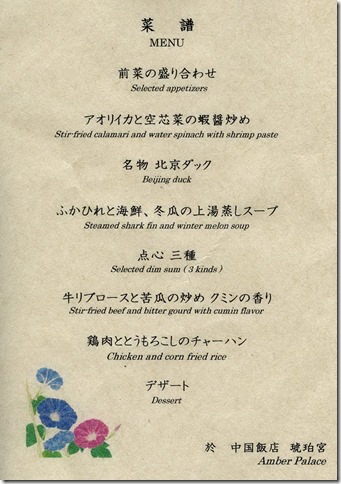 菜 譜
MENU
前菜の盛り合わせ
Selected appetizers
アオリイカと空芯菜の蝦醤炒め
Stir-fried calamari and water spinach with shrimp paste
名物 北京ダック
Beijing duck
ふかひれと海鮮、冬瓜の上湯蒸しスープ
Steamed shark fin and winter melon soup
点心 三種
Selected dim sum ( 3 kinds )
牛リブロースと苦瓜の炒め クミンの香り
Stir-fried beef and bitter gourd with cumin flavor
鶏肉ととうもろこしのチャーハン
Chicken and corn fried rice
デザート
Dessert
於 中国飯店 琥珀宮
Amber Palace